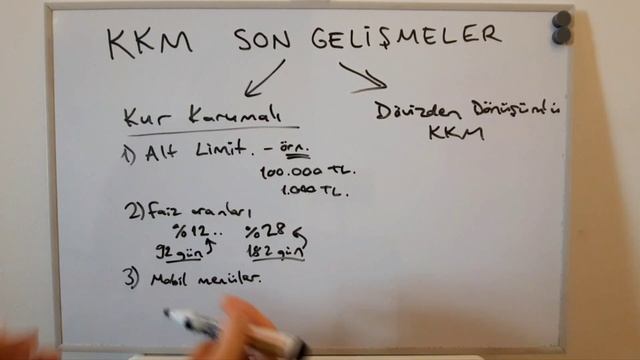 KKM SON GELİŞMELER
Kur Korumalı
1) Alt Limit. - örn.
100.000 TL.
1.000 TL.
2) faiz oranları
%12.. %28
92 gün 182 gün
3) Mobil menüler.
Dövizden Dönüşümlü
KKM